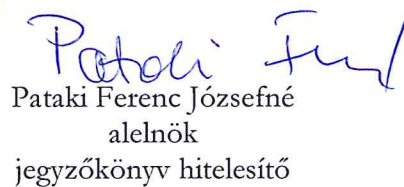 Pataki Ferenc Józsefné
alelnök
jegyzőkönyv hitelesítő